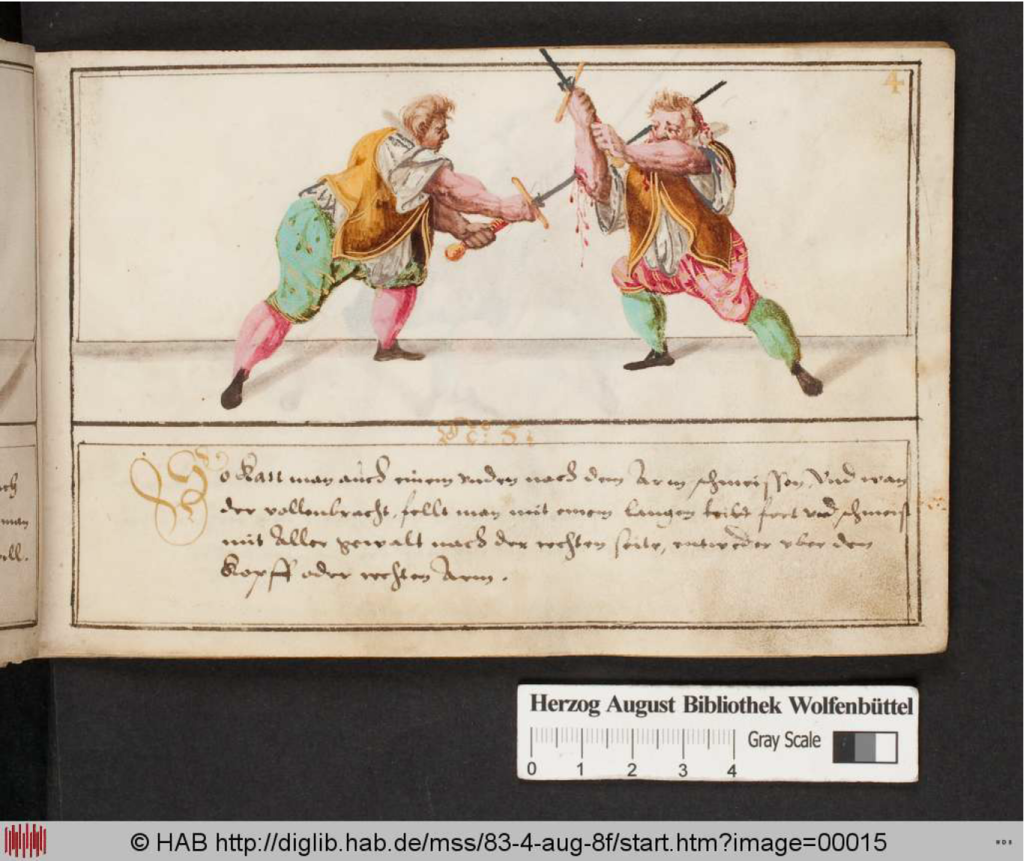 4
No: 5:
So kan man auch einem den nach dem Arm schmeissen, Vnd wan
der vollenbracht, fellt man mit einem langen leibe fort vnd schmeist
mit Aller gewalt nach der rechten seite, entweder vber den
Kopff oder rechten Arm.
man
ll.
Herzog August Bibliothek Wolfenbüttel
0 1 2 3 4
Gray Scale
© HAB http://diglib.hab.de/mss/83-4-aug-8f/start.htm?image=00015